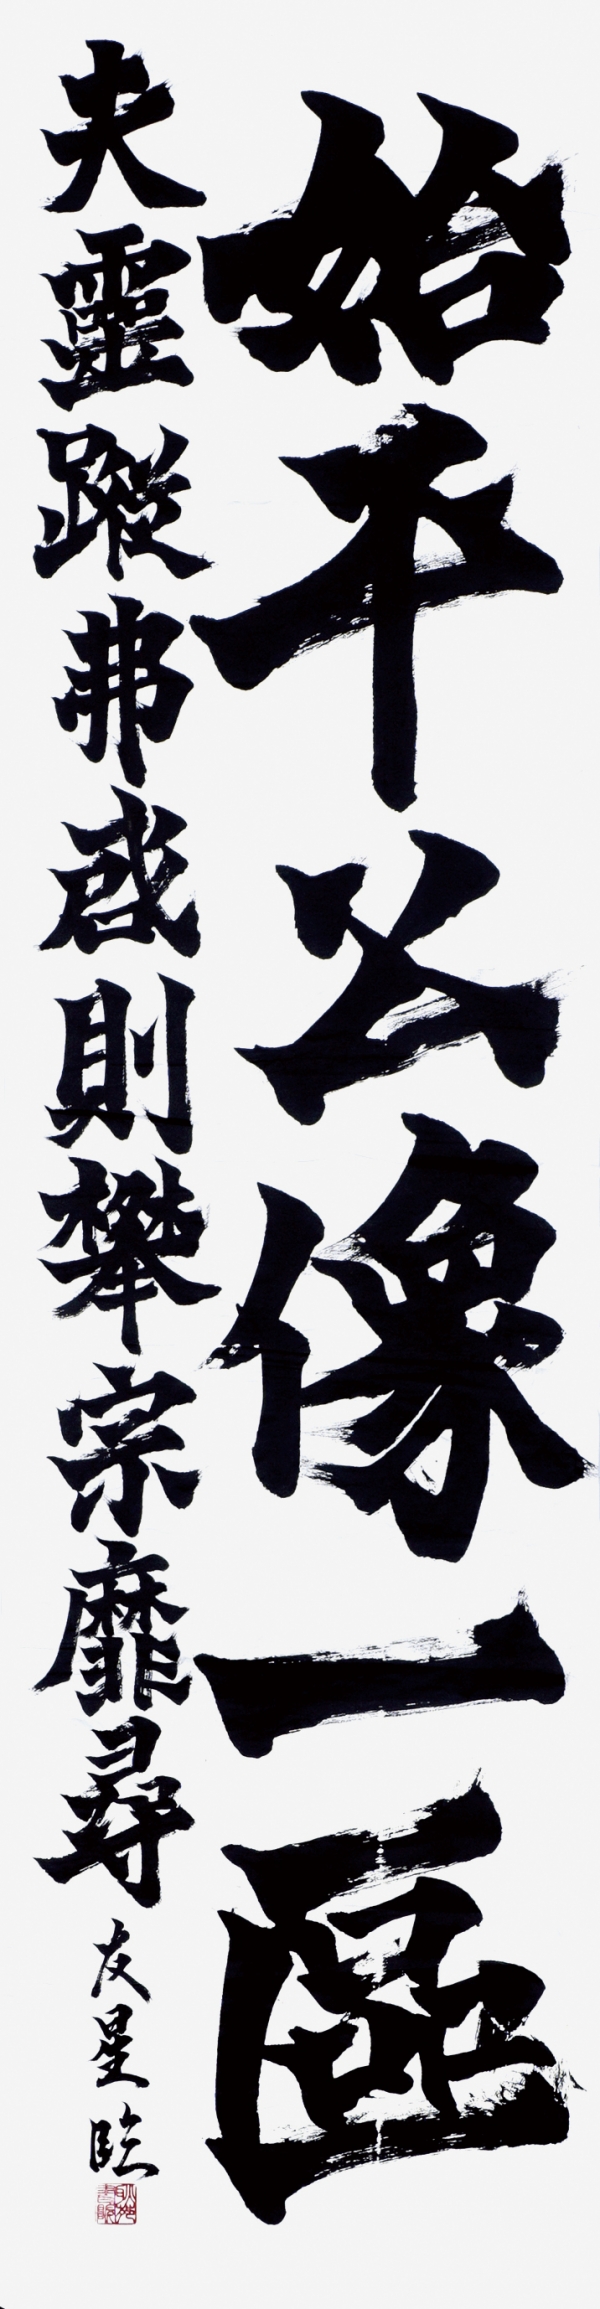 始平公像一區
夫靈蹤弗啓則攀宗靡尋
友星臨